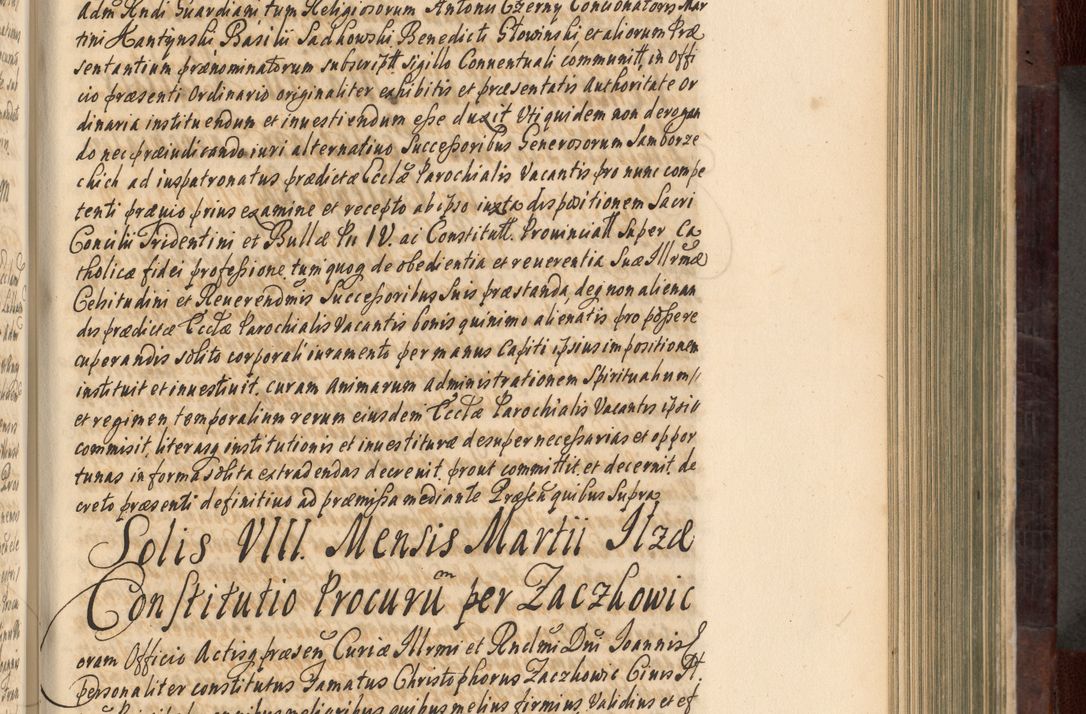 Adm Rndi Guardiani tum Religiosorum Antonii Czerny Concionatoris Mar
tini Kantynski, Basilii Sadkowski, Benedicti Głowinski et aliorum Præ
sentantium prænominatorum subscriptt sigillo Conuentuali communitt, in Offi
cio præsenti Ordinario originaliter exhibitis et præsentatis Authoritate Or
dinaria instituendum et inuestiendum esse duxit Vti quidem non derogan
do nec præiudicando iuri alternatiuo Successoribus Generosorum Samborze
ckich ad iuspatronatus prædictæ Ecclæ Parochialis Vacantis pro nunc compe
tenti præuio prius examine et recepto ab ipso iuxta dispositionem Sacri
Concilii Tridentini et Bullæ Pii IV. ac Constitutt. Prouinciall Super Ca
tholicæ fidei professione tum quoq de obedientia et reuerentia Suæ Illrmæ
Celsitudini et Reuerendmis Successoribus Suis præstanda, deq non alienan
dis prædictæ Ecclæ Parochialis Vacantis bonis quinimo alienatis pro posse re
cuperandis solito corporali iuramento per manus Capiti ipsius impositionem
instituit et inuestiuit. curam Animarum administrationem Spiritualium
et regimen temporalium rerum eiusdem Ecclæ Parochialis Vacantis ipsi
commisit, literasq institutionis et inuestituræ desuper necessarias et oppor
tunas in forma solita extradendas decreuit. prout committit. et decernit. de
creto præsenti definitiuo ad præmissa mediante Præsen quibus Supra
Solis VIII. Mensis Martii Ilzæ
Constitutio Procurũ on per Zaczkowic
oram Officio Actisq præsen Curiæ Illrmi et Rndmi Dni Joannis
personaliter constitutus Famatus Christophorus Zaczkowic Ciuis
omnibus melioribus quibus melius firmius Validius et ef